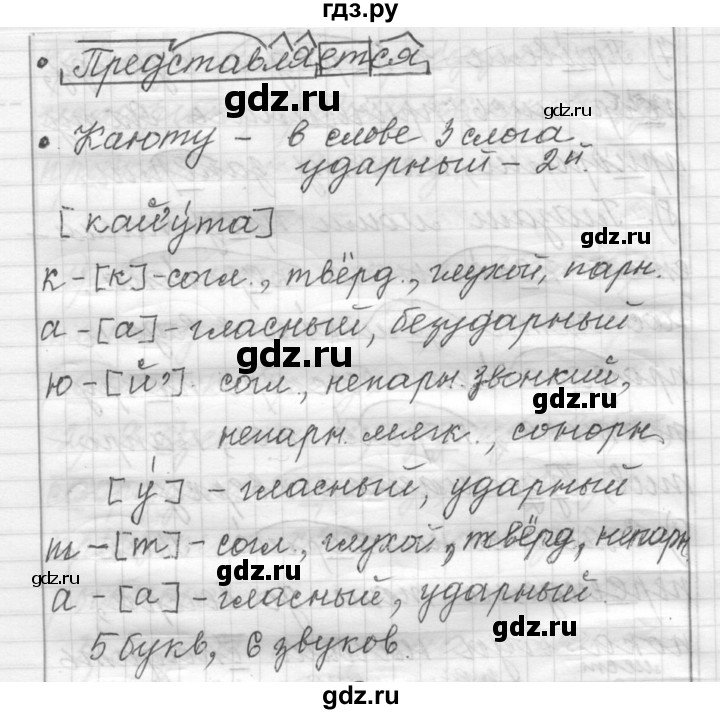 гдз.ру
• Представляется
gdz.ru
gdz.ru
• Каюту – в слове 3 слога
ударный – 2й.
[кай'у́та]
gdz.ru
к – [к] – согл., твёрд., глухой, парн.
а – [а] – гласный, безударный
gdz.ru
ю – [й'] согл., непарн. звонкий,
gdz.ru
непарн. мягк., сонорн
[у́] – гласный, ударный
т – [т] – согл., глухой, твёрд, непарн.
gdz.ru
gdz.ru
а – [а] – гласный, ударный.
gdz.ru
5 букв, 6 звуков.
gdz.ru